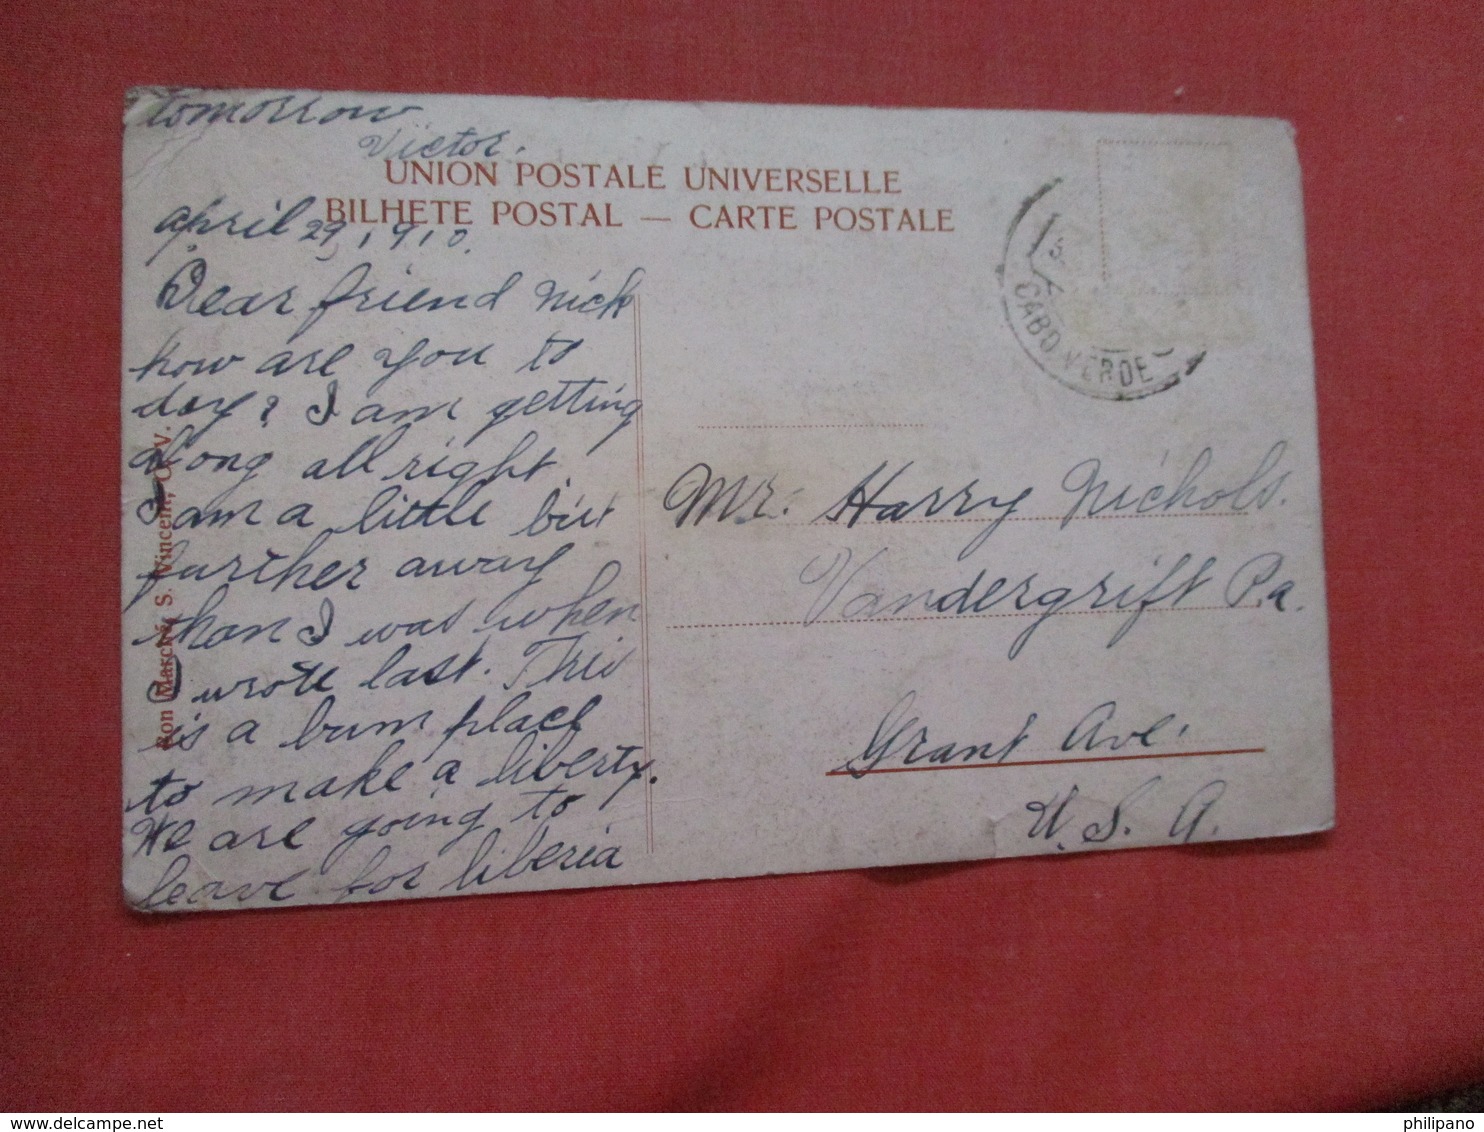 tomorrow
Victor.
UNION POSTALE UNIVERSELLE
BILHETE POSTAL — CARTE POSTALE
april 29, 1910.
Dear friend Nick
how are you to
day? I am getting
along all right.
I am a little bit
further away
than I was when
I wrote last. This
is a bum place
to make a liberty.
We are going to
leave for liberia
Bon Marché, S. Vincent, C. V.
CABO VERDE
Mr. Harry Nichols.
Vandergrift Pa.
Grant Ave.
U. S. A.
delcampe.net
philipano